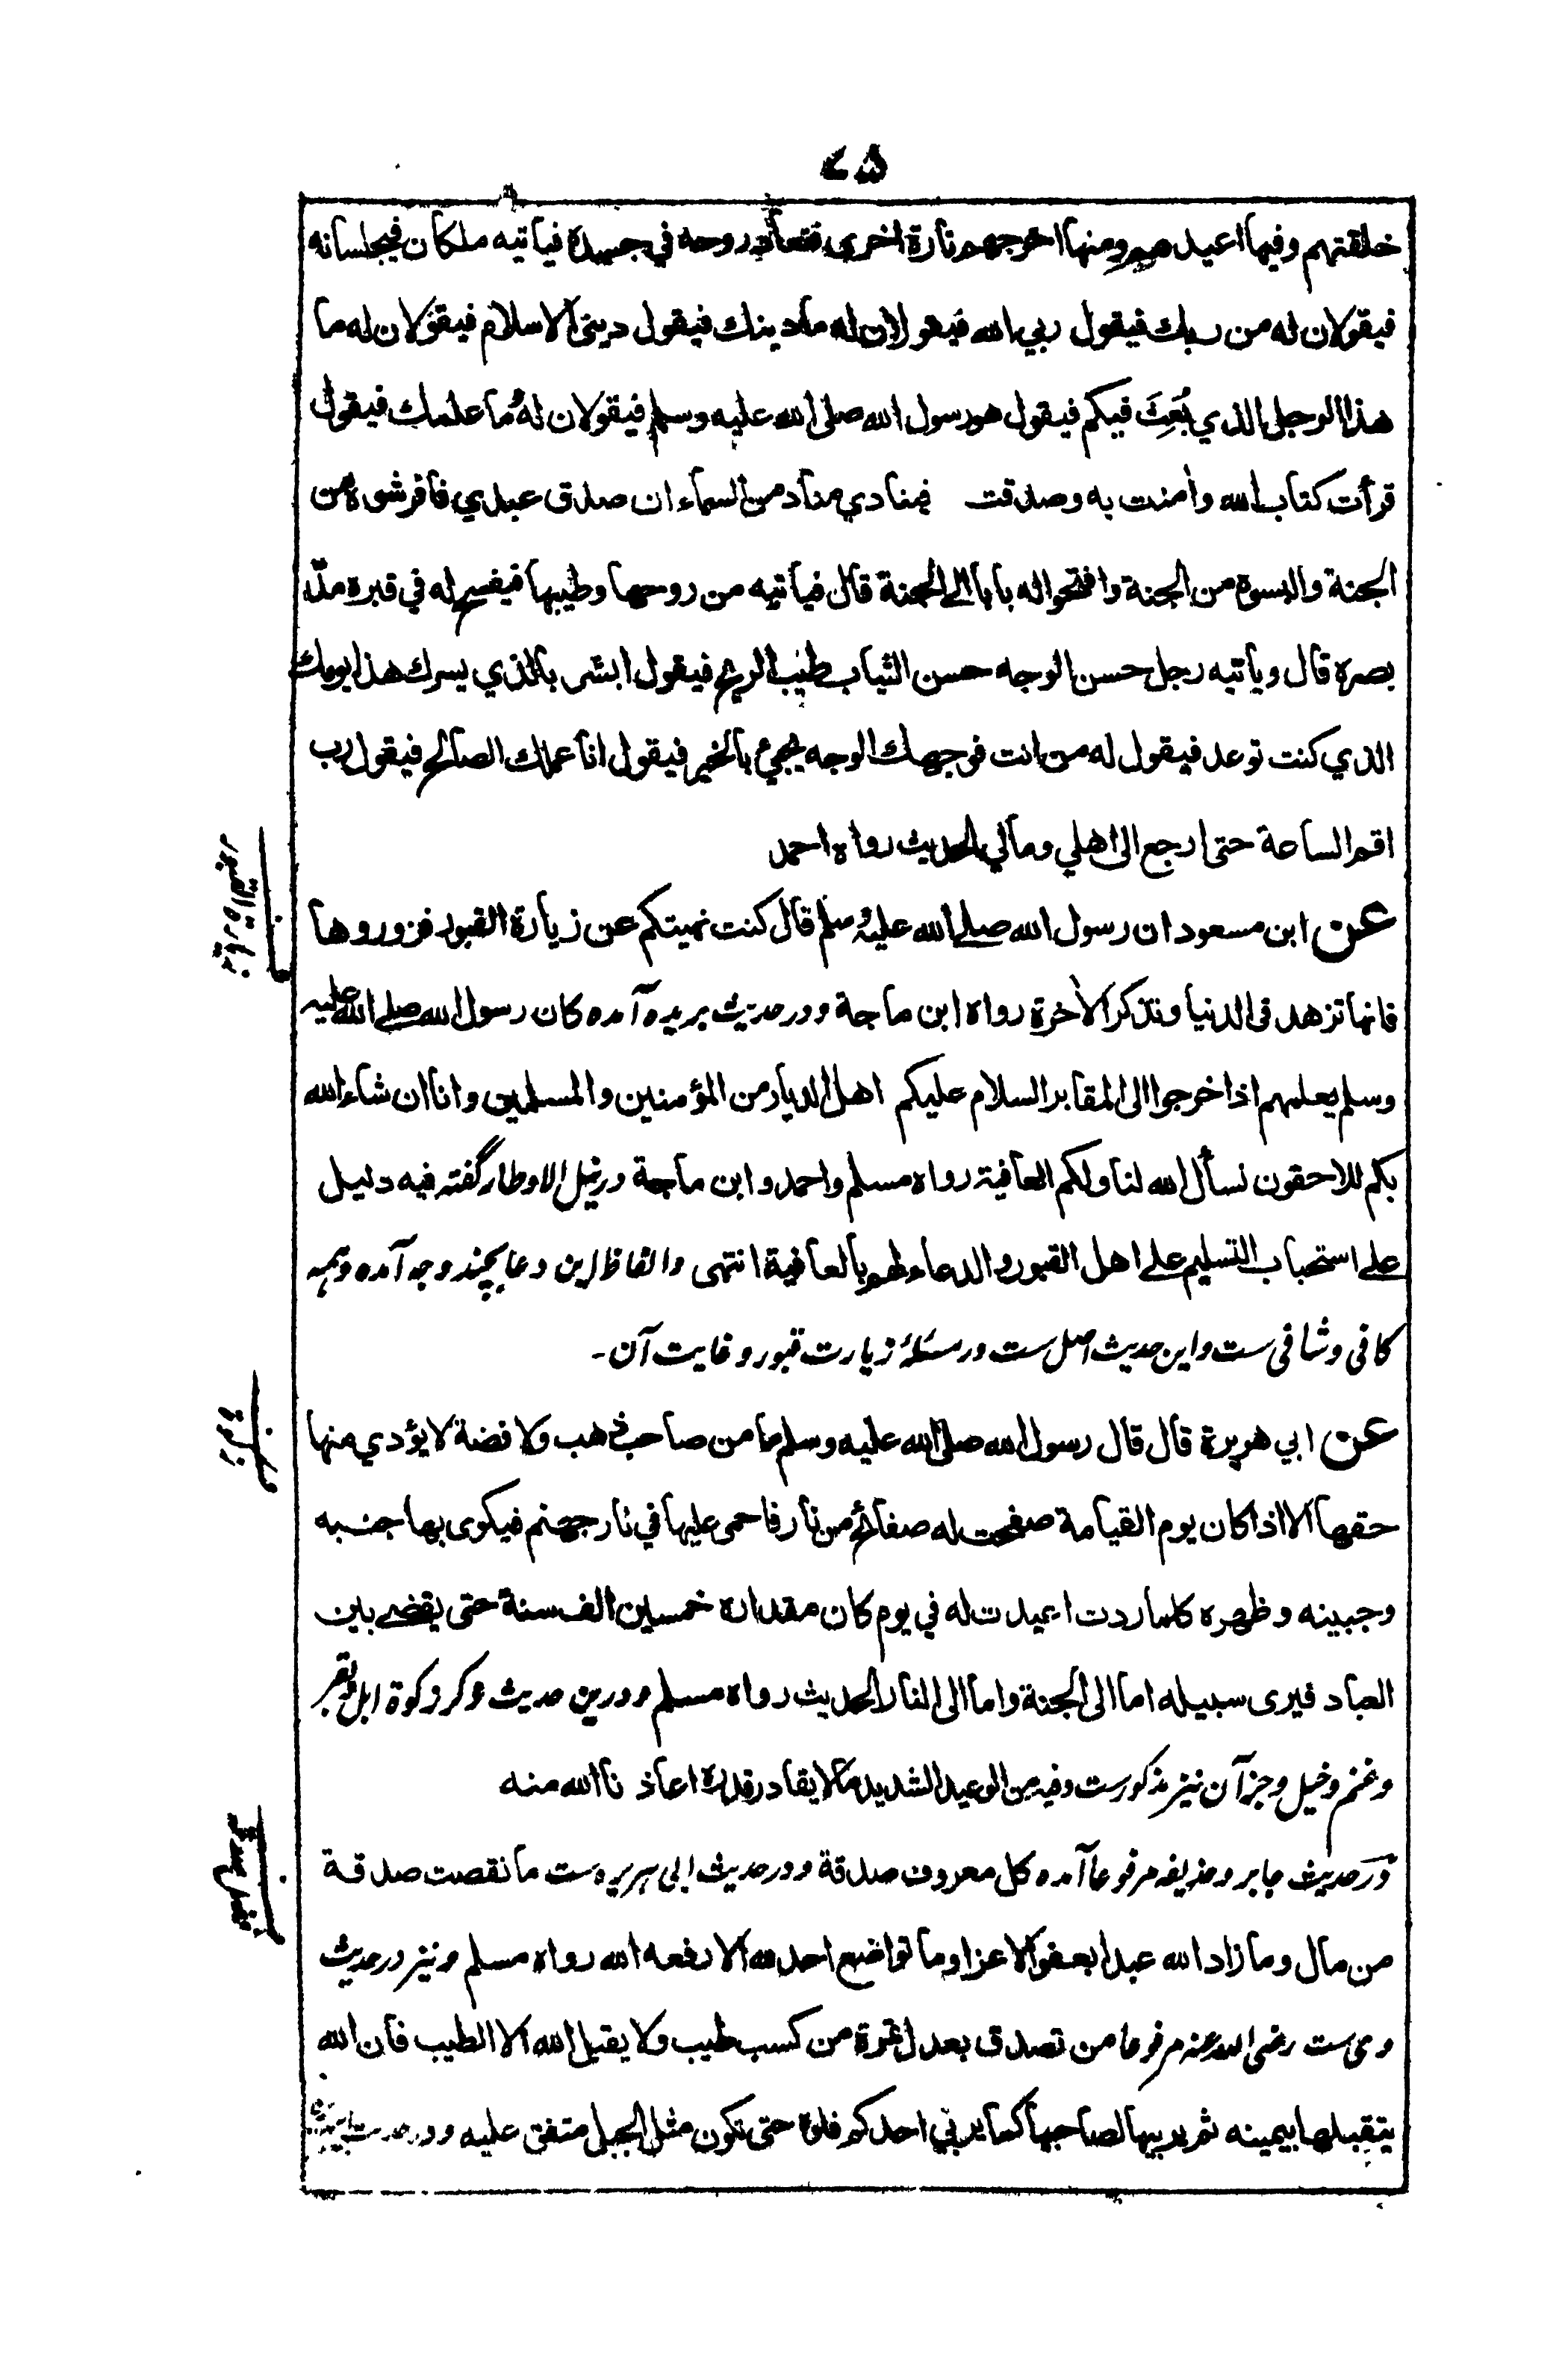 ٧٥
خلقتهم وفيها اعيدهم ومنها اخرجهم تارة اخرى فتعاد روحه في جسده فياتيه ملكان فيجلسانه
فيقولان له من ربك فيقول ربي الله فيقولان له ما دينك فيقول ديني الاسلام فيقولان له ما
هذا الرجل الذي بُعِثَ فيكم فيقول هو رسول الله صلى الله عليه وسلم فيقولان لهُ ما علمك فيقول
قرأت كتاب الله وأمنت به وصدقت فينادي مناد من السماء ان صدق عبدي فافرشوه من
الجنة والبسوه من الجنة وافتحوا له بابا الى الجنة قال فياتيه من روحها وطيبها فيفسح له في قبره مدّ
بصره قال وياتيه رجل حسن الوجه حسن الثياب طيب الريح فيقول ابشر بالذي يسرك هذا يومك
الذي كنت توعد فيقول له من انت فوجهك الوجه يجيء بالخير فيقول انا عملك الصالح فيقول رب
اقم الساعة حتى ارجع الى اهلي ومالي الحديث رواه احمد
زيارة القبور
عن ابن مسعود ان رسول الله صلى الله عليه وسلم قال كنت نهيتكم عن زيارة القبور فزوروها
فانها تزهد في الدنيا وتذكر الأخرة رواه ابن ماجة ودر حديث بريده آمده كان رسول الله صلى الله عليه
وسلم يعلمهم اذا خرجوا الى المقابر السلام عليكم اهل الديار من المؤمنين والمسلمين وانا ان شاء الله
بكم للاحقون نسأل الله لنا ولكم العافية رواه مسلم واحمد وابن ماجة در نيل الاوطار گفته فيه دليل
على استحباب التسليم على اهل القبور والدعاء لهم بالعافية انتهى والفاظ اين دعا بچند وجه آمده وهمه
كافى وشافى ست واين حديث اصل ست در مسئلۂ زيارت قبور وغايت آن۔
زكوة
عن ابي هريرة قال قال رسول الله صلى الله عليه وسلم ما من صاحب ذهب ولا فضة لا يؤدي منها
حقها الا اذا كان يوم القيامة صفحت له صفائح من نار فاحمى عليها في نار جهنم فيكوى بها جنبه
وجبينه وظهره كلما ردت اعيدت له في يوم كان مقداره خمسين الف سنة حتى يقضى بين
العباد فيرى سبيله اما الى الجنة واما الى النار الحديث رواه مسلم ودرين حديث ذكر زكوة ابل وبقر
وغنم وخيل وجز آن نيز مذكورست وفيه من الوعيد الشديد ما لا يقادر قدره اعاذ نا الله منه
در حديث جابر وحذيفه مرفوعا آمده كل معروف صدقة ودر حديث ابى هريره ست ما نقصت صدقة
من مال وما زاد الله عبدا بعفو الا عزا وما تواضع احد لله الا رفعه الله رواه مسلم ونيز در حديث
وى ست رضى الله عنه مرفوعا من تصدق بعدل تمرة من كسب طيب ولا يقبل الله الا الطيب فان الله
يتقبلها بيمينه ثم يربيها لصاحبها كما يربي احدكم فلوه حتى تكون مثل الجبل متفق عليه ودر حديث